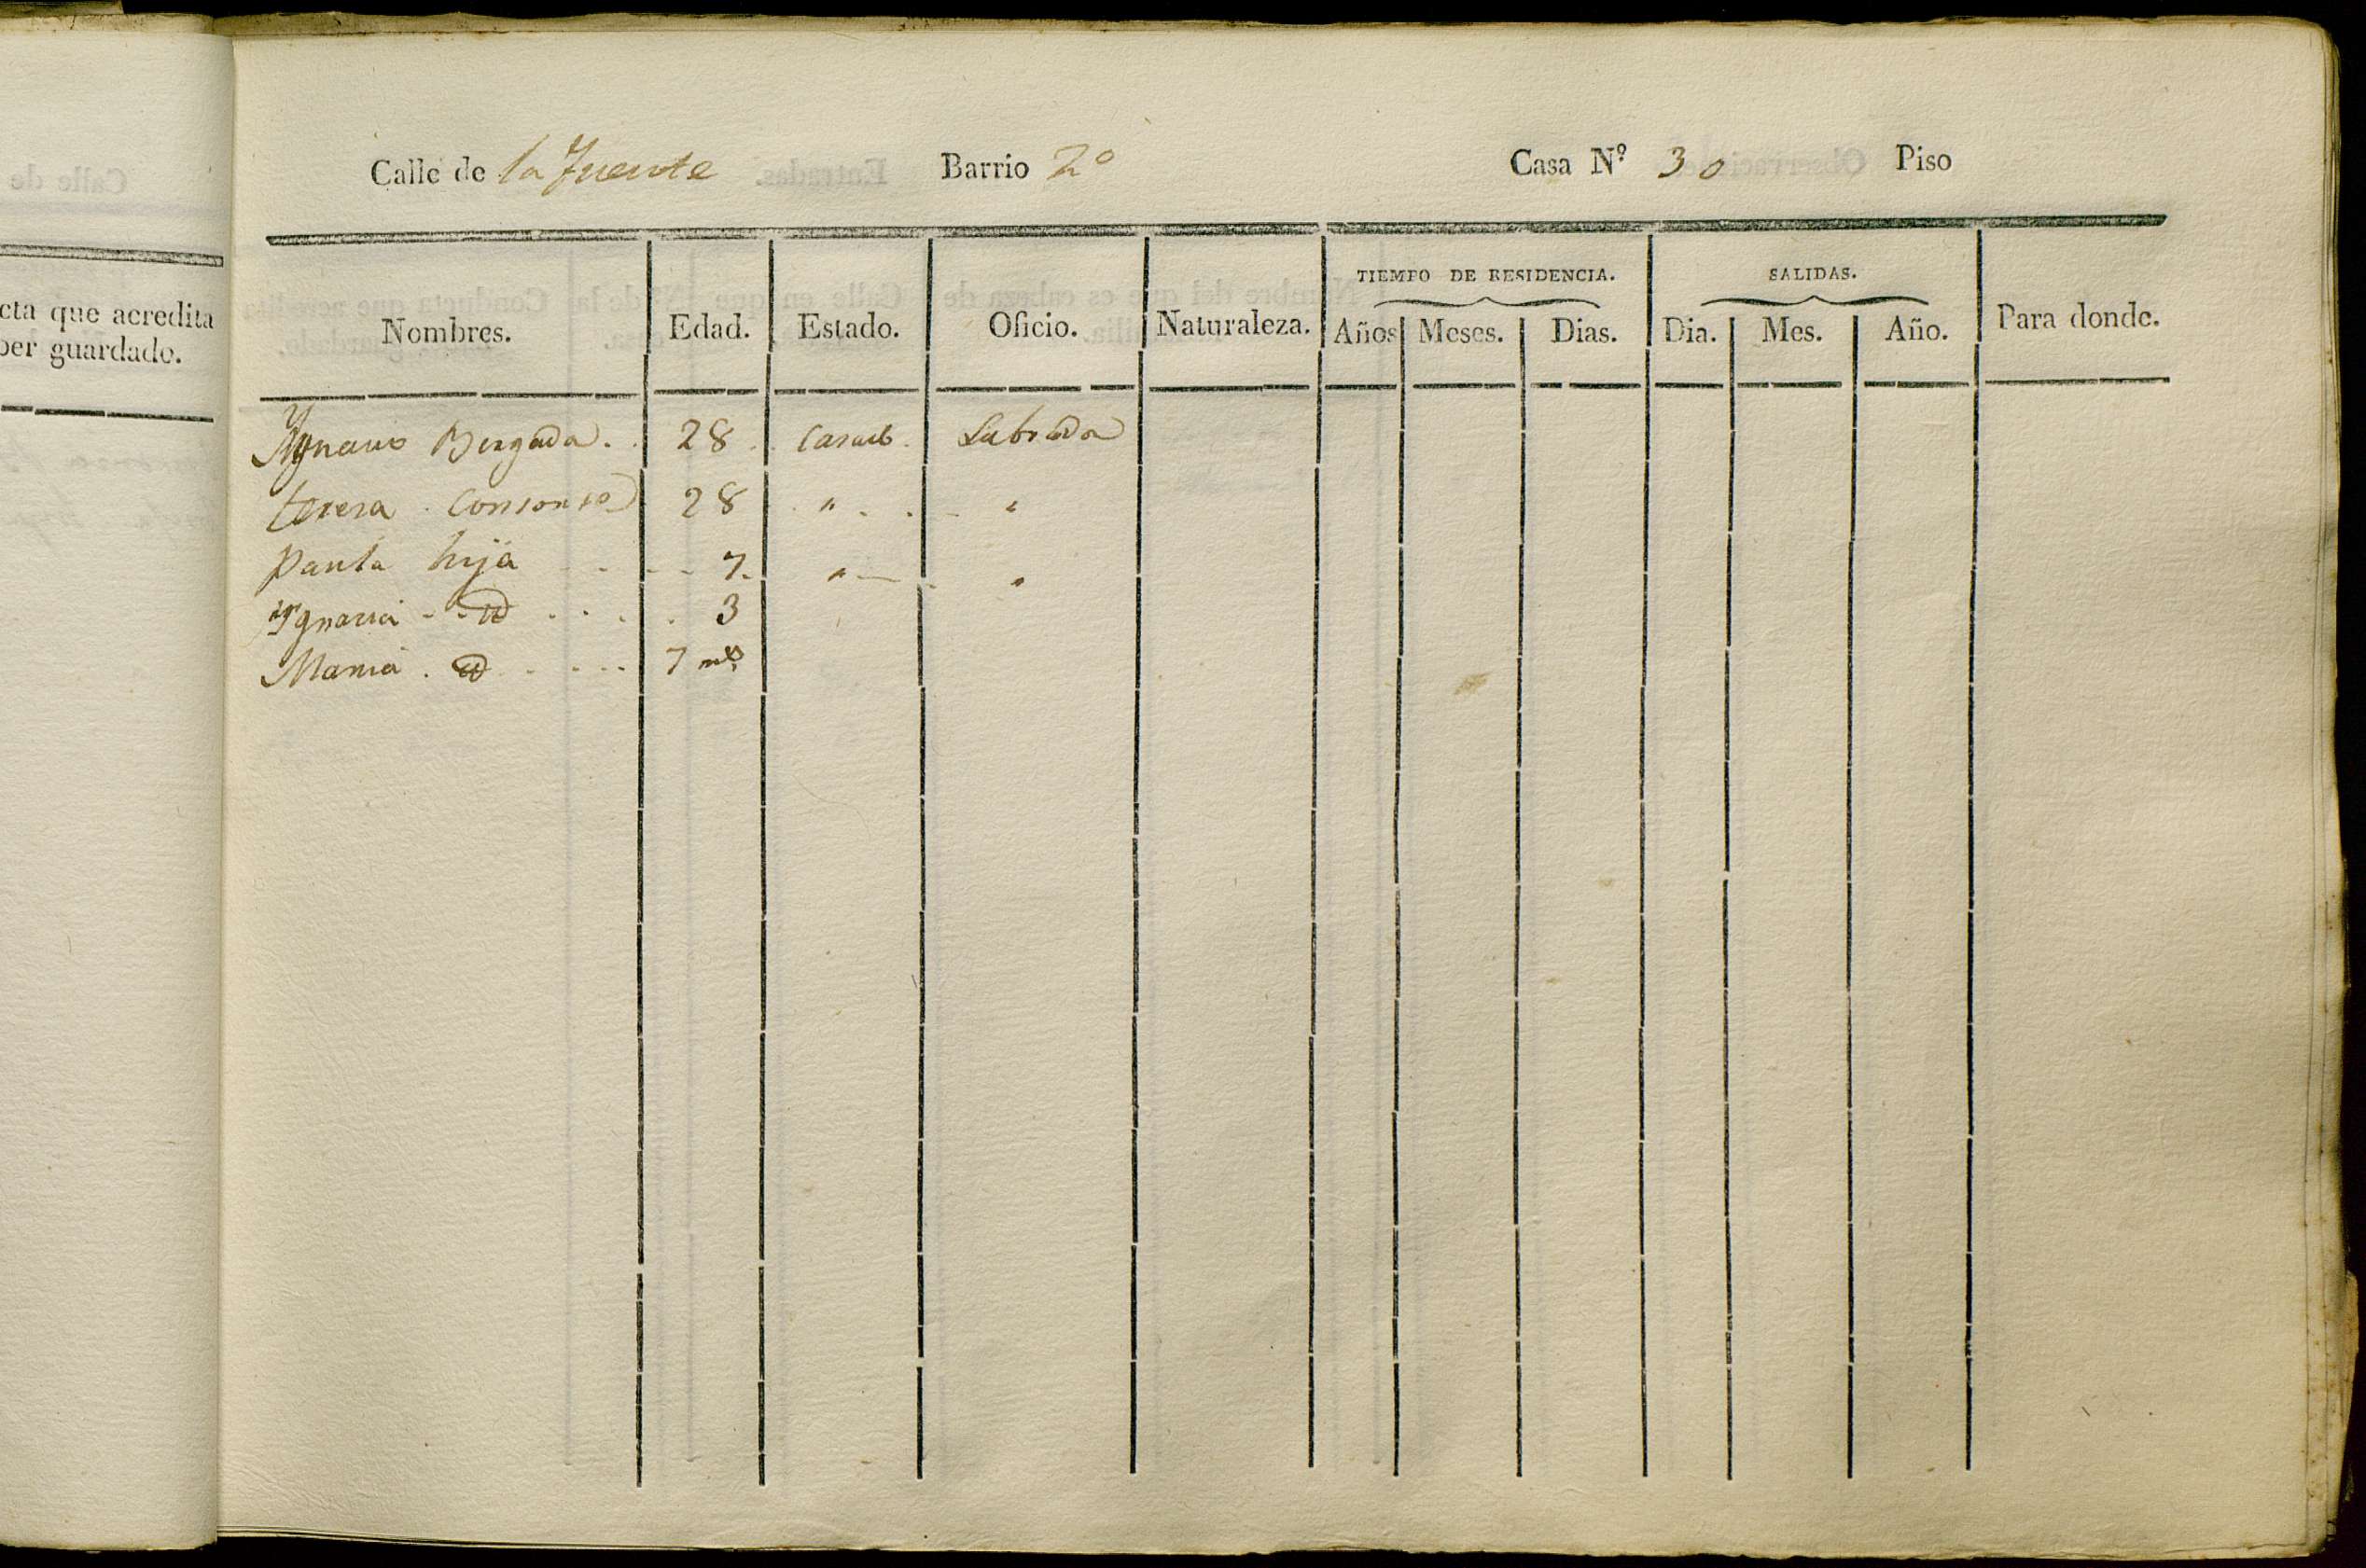 cta que acredita
ber guardado.
Calle de la fuente Barrio 2º Casa Nº 30 Piso
TIEMPO DE RESIDENCIA. SALIDAS.
Nombres. Edad. Estado. Oficio. Naturaleza. Años Meses. Dias. Dia. Mes. Año. Para donde.
Ygnacio Bergada. 28 Casado. Labrador
teresa Consorte 28 " "
Paula hija 7 " "
Ygnacia id 3
Maria id 7 ms